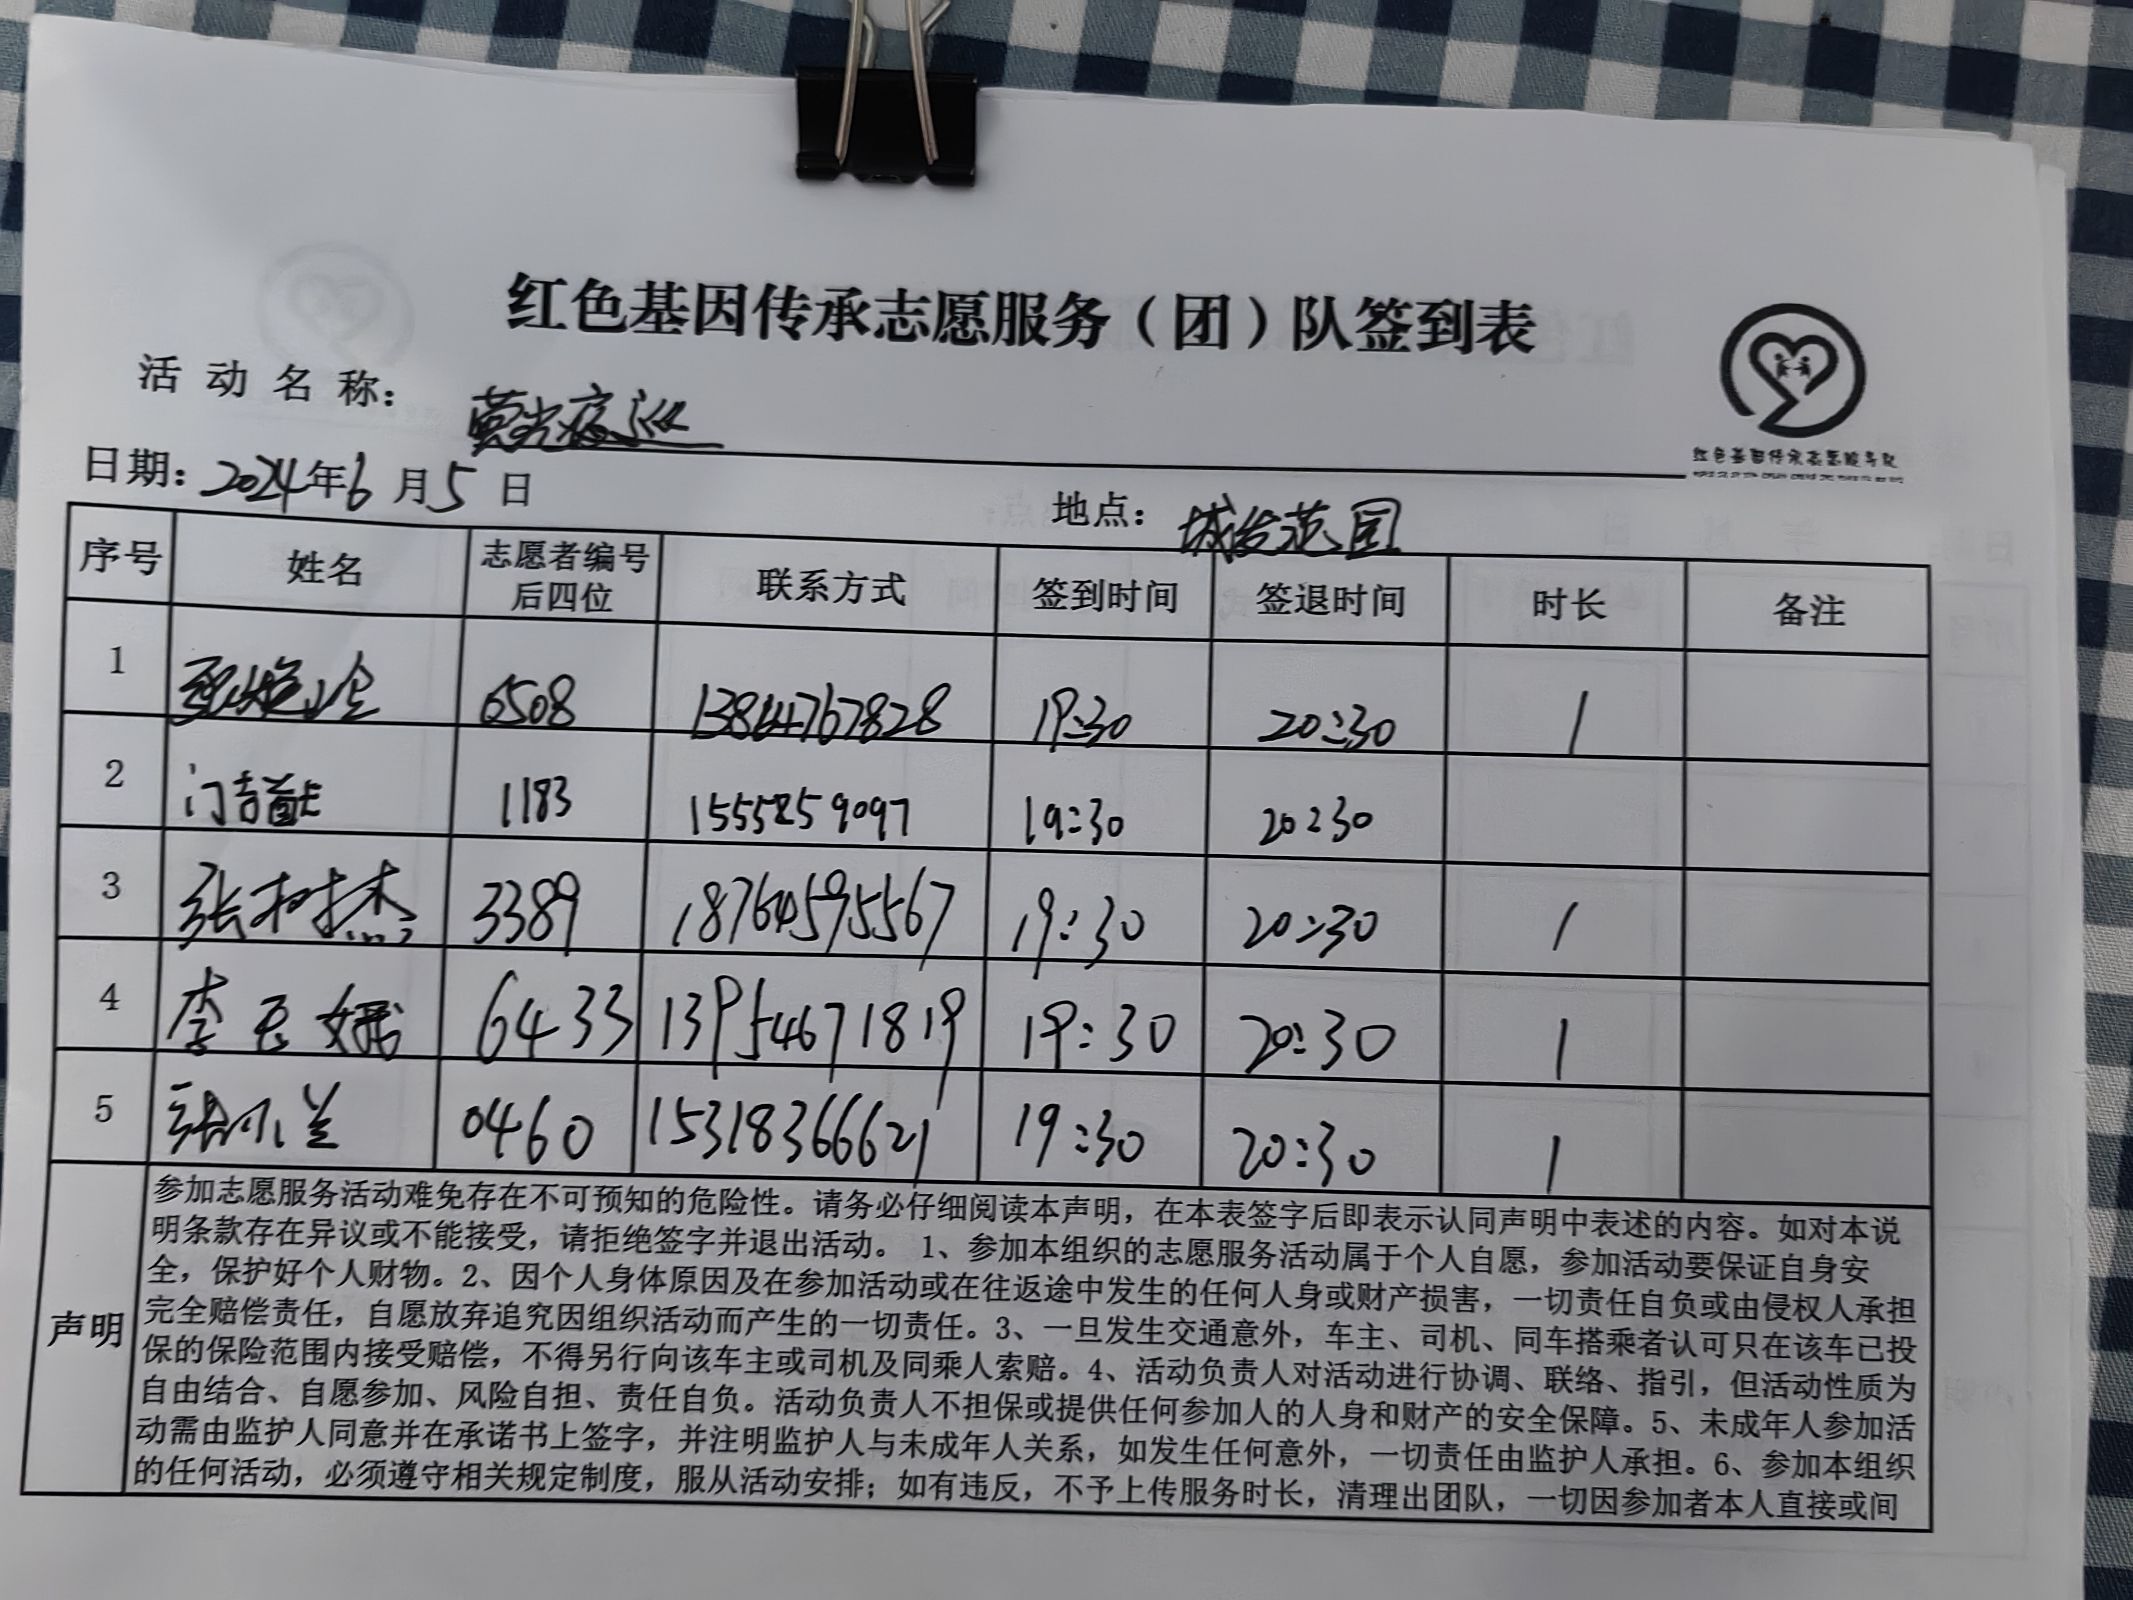 红色基因传承志愿服务（团）队签到表
活动名称：萤光夜巡
日期：2024年6月5日 地点：城发范园
序号 姓名 志愿者编号后四位 联系方式 签到时间 签退时间 时长 备注
1 6508 13864767828 19:30 20:30 1
2 1183 19:30 20:30
3 张树杰 3389 18764595567 19:30 20:30 1
4 李玉娥 6433 13954671819 19:30 20:30 1
5 张小兰 0460 15318366621 19:30 20:30 1
声明
参加志愿服务活动难免存在不可预知的危险性。请务必仔细阅读本声明，在本表签字后即表示认同声明中表述的内容。如对本说
明条款存在异议或不能接受，请拒绝签字并退出活动。 1、参加本组织的志愿服务活动属于个人自愿，参加活动要保证自身安
全，保护好个人财物。2、因个人身体原因及在参加活动或在往返途中发生的任何人身或财产损害，一切责任自负或由侵权人承担
完全赔偿责任，自愿放弃追究因组织活动而产生的一切责任。3、一旦发生交通意外，车主、司机、同车搭乘者认可只在该车已投
保的保险范围内接受赔偿，不得另行向该车主或司机及同乘人索赔。4、活动负责人对活动进行协调、联络、指引，但活动性质为
自由结合、自愿参加、风险自担、责任自负。活动负责人不担保或提供任何参加人的人身和财产的安全保障。5、未成年人参加活
动需由监护人同意并在承诺书上签字，并注明监护人与未成年人关系，如发生任何意外，一切责任由监护人承担。6、参加本组织
的任何活动，必须遵守相关规定制度，服从活动安排；如有违反，不予上传服务时长，清理出团队，一切因参加者本人直接或间